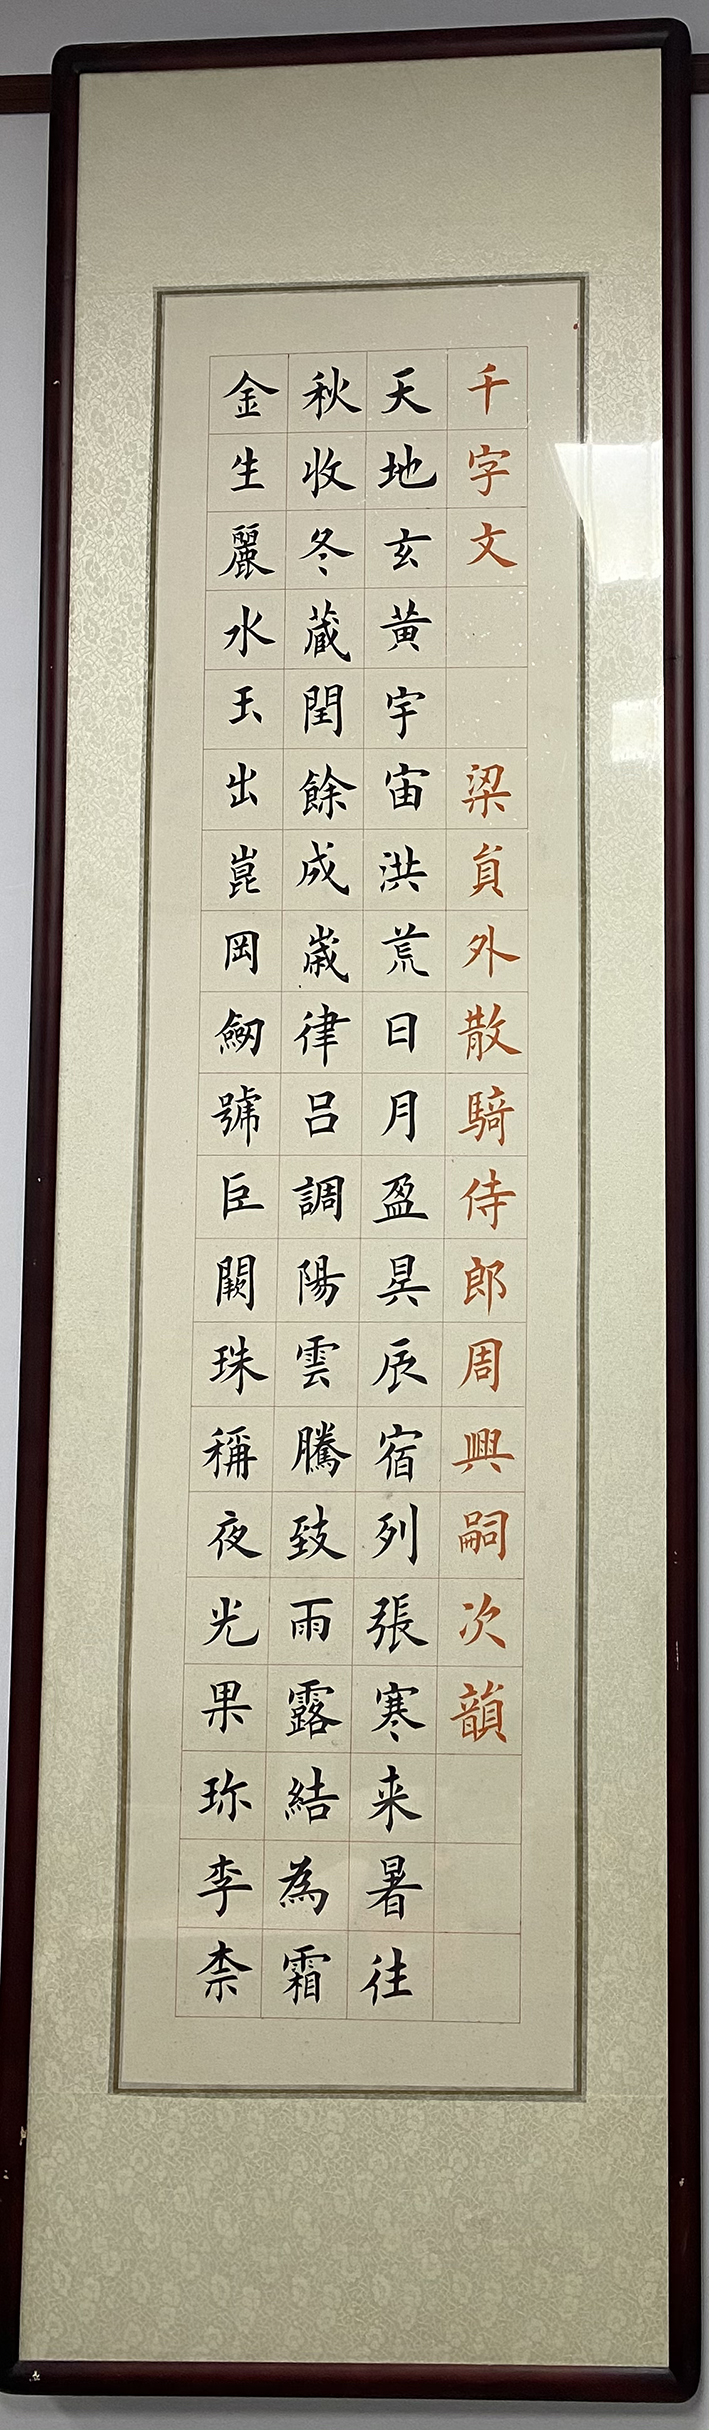 千字文 梁貟外散騎侍郎周興嗣次韻
天地玄黄宇宙洪荒日月盈昃辰宿列張寒来暑往
秋收冬蔵閏餘成歳律吕調陽雲騰致雨露結為霜
金生麗水玉出崑岡劒號巨闕珠稱夜光果珎李柰